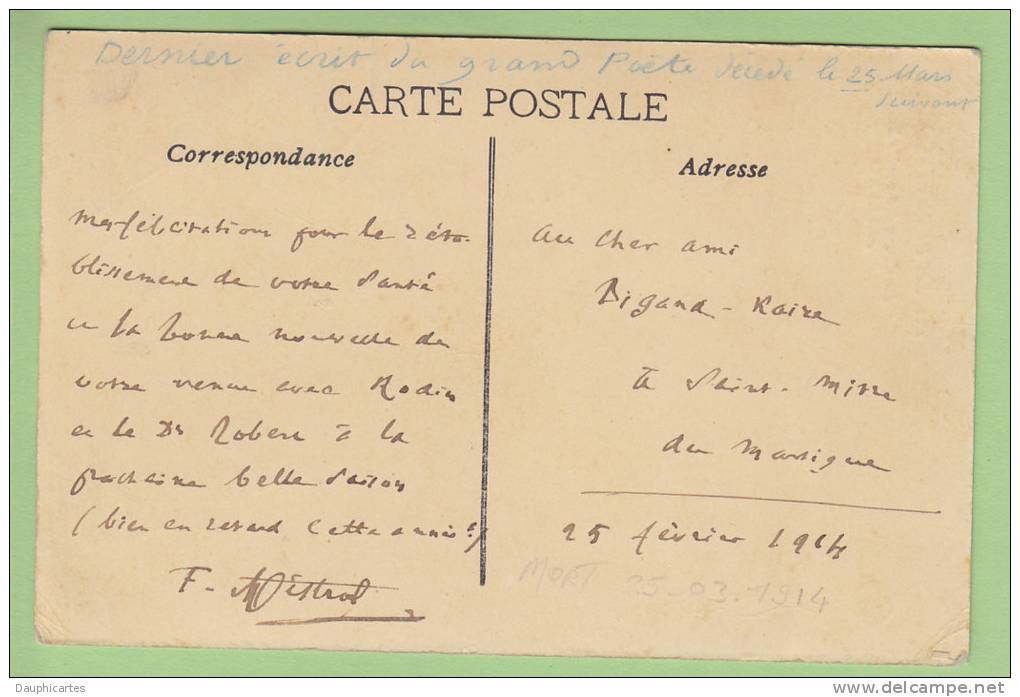 Dernier écrit du grand Poëte décédé le 25 Mars
suivant
CARTE POSTALE
Correspondance
mes félicitations pour le réta-
blissement de votre santé
et la bonne nouvelle de
votre venue avec Rodin
et le Dr Robert à la
prochaine belle saison
(bien en retard cette année!)
F. Mistral
Adresse
au cher ami
Bigand-Kaire
à Saint-Mitre
du Martigue
25 février 1914
MORT 25.03.1914
Dauphicartes
http://www.delcampe.net